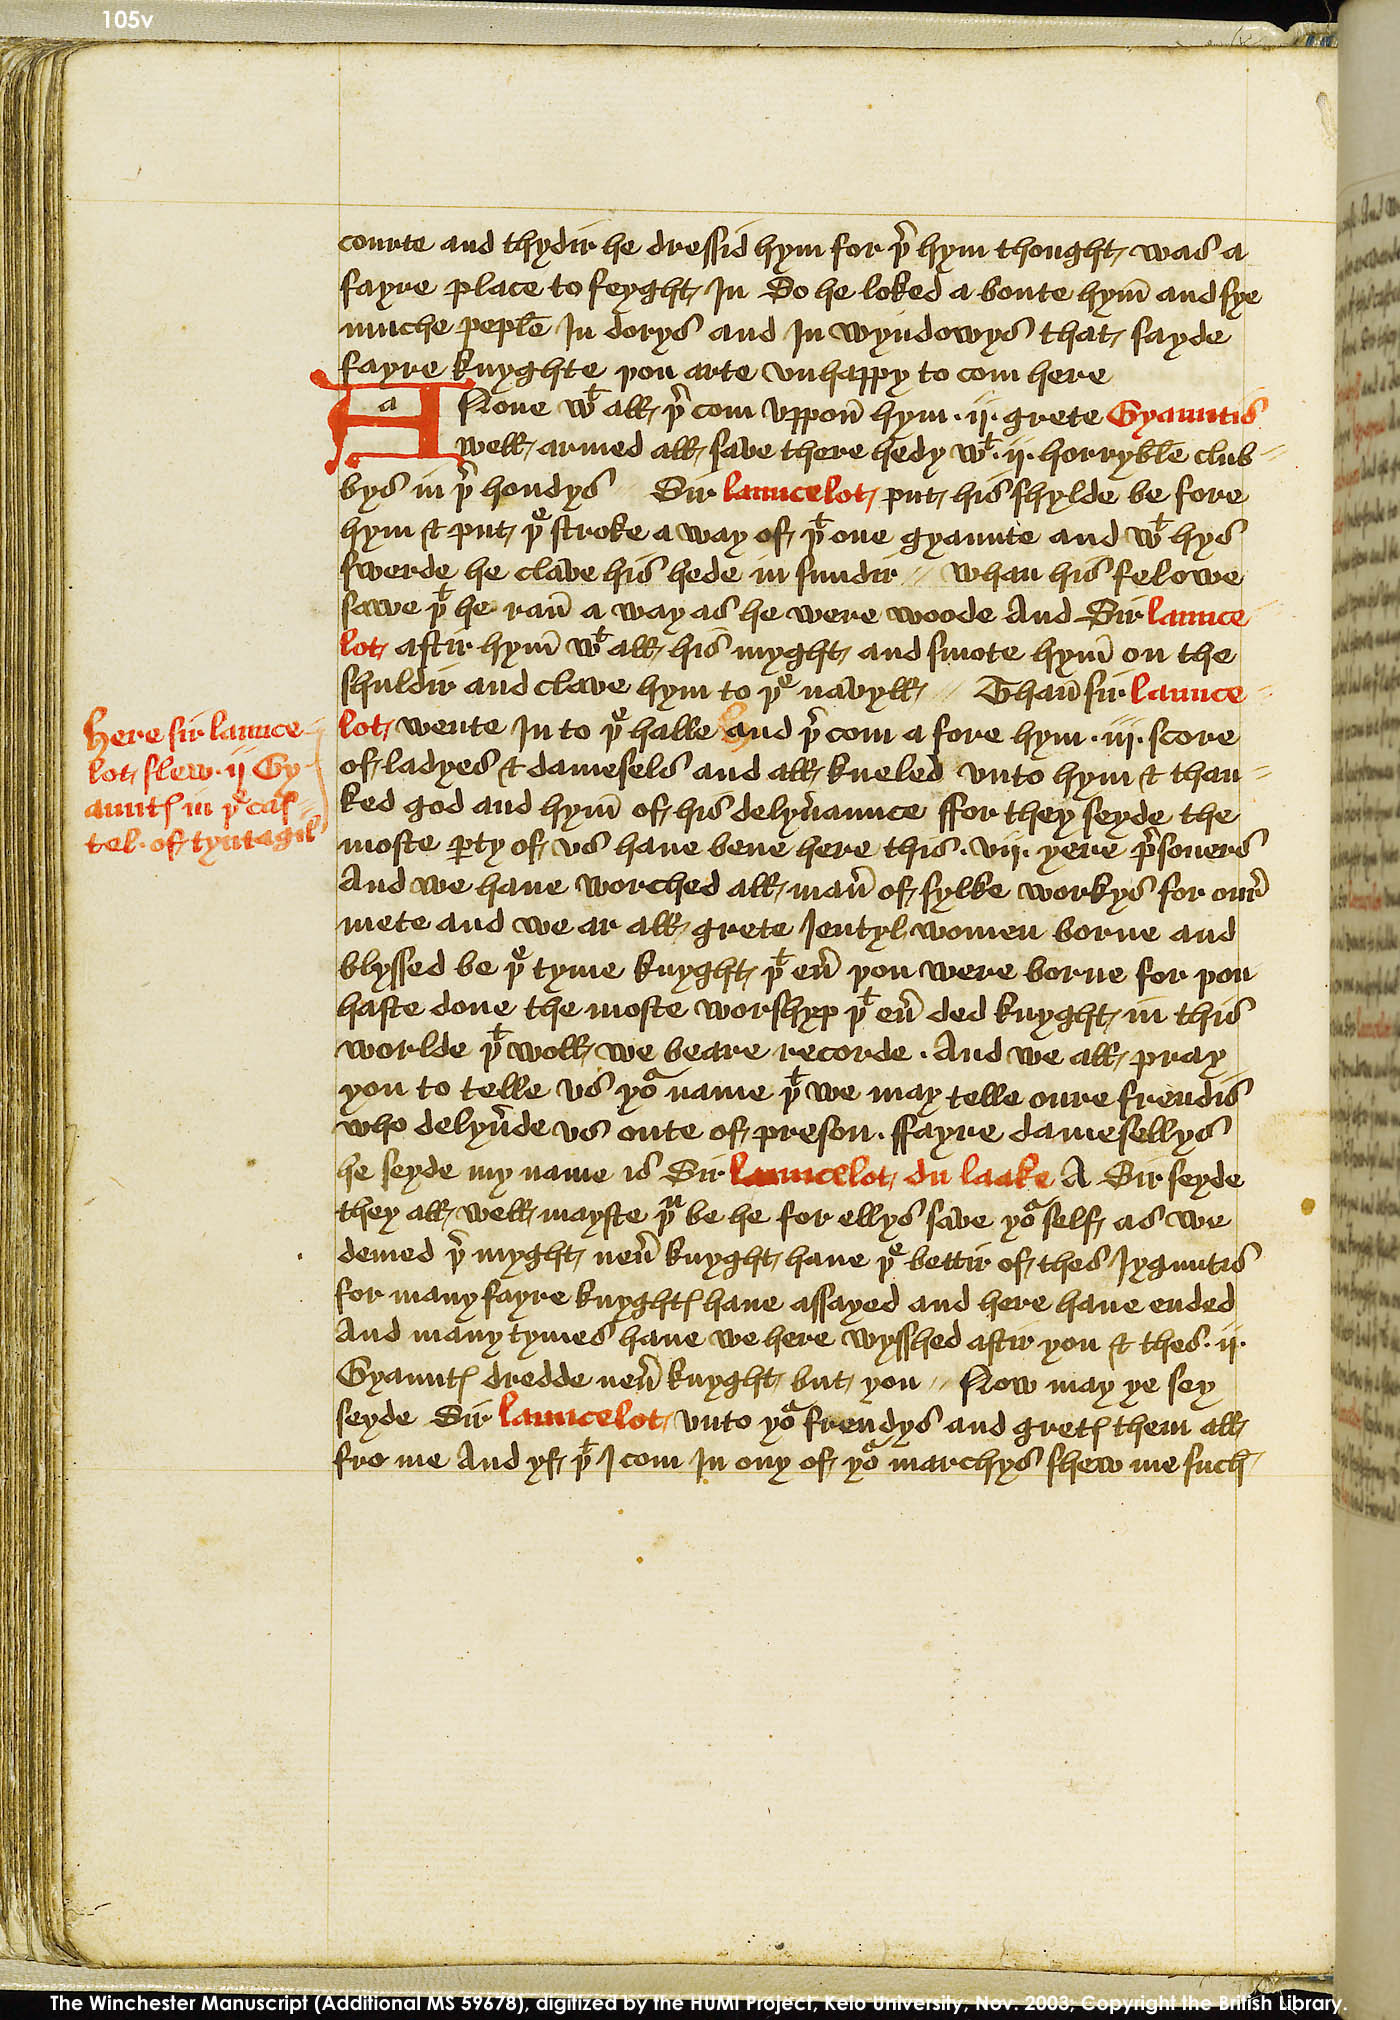 105v
courte and thydir he dressid hym for þ^r hym thought was a
fayre place to feyght In So he loked a boute hym̄ and sye
muche pepl̄e In dorys and In wyndowys that sayde
fayre knyghte þou arte vnhappy to com here
A None w^t all þ^r com vppon̄ hym .ij. grete Gyauntis
well armed all save there hedy w^t .ij. horrybl̄e club=
bys in þ^r hondys Sir launcelot put his shylde be fore
hym & put þ^e stroke a way of þ^t one gyaunte and w^t hys
swerde he clave his hede in sundir // whan his felowe
sawe þ^t he ran̄ a way as he were woode And Sir launce=
lot aftir hym̄ w^t all his myght and smote hym̄ on the
shuldir and clave hym to þ^e navyll // Than̄ sir launce=
lot wente In to þ^e halle and þ^r com a fore hym .iij. score
of ladyes & damesels and all kneled vnto hym & than=
ked god and hym̄ of his delyu̾aunce ffor they seyde the
moste ꝑty of vs haue bene here this .vij. yere p^rsoners
And we haue worched all man̾ of sylke workys for our̾
mete and we ar all grete Ientyl women borne and
blyssed be þ^e tyme knyght þ^t eu̾ þou were borne for þou
haste done the moste worshyp þ^t eu̾ ded knyght in this
worlde þ^t woll we beare recorde . And we all pray
you to telle vs yo^r name þ^t we may telle oure frendis
who delyu̾de vs oute of preson . ffayre damesellys
he seyde my name is Sir launcelot du laake A Sir seyde
they all well mayste þ^u be he for ellys save yo^r self as we
demed þ^r myght neu̾ knyght haue þ^e bettir of thes Iyguntis
for many fayre knyghtꝭ haue assayed and here haue ended
And many tymes haue we here wysshed aftir you & thes .ij.
Gyauntꝭ dredde neu̾ knyght but you // Now may ye sey
seyde Sir launcelot vnto yo^r frendys and gretꝭ them all
fro me And yf þ^t I com In ony of yo^r marchys shew me such
Here sir launce=
lot slew .ij Gy=
auntꝭ in þ^e cas=
tel . of tyntagil
The Winchester Manuscript (Additional MS 59678), digitized by the HUMI Project, Keio University, Nov. 2003; Copyright the British Library.